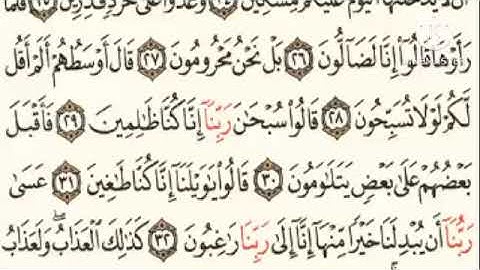 أَن لَّا يَدْخُلَنَّهَا ٱلْيَوْمَ عَلَيْكُم مِّسْكِينٌ ٢٤ وَغَدَوْا۟ عَلَىٰ حَرْدٍ قَٰدِرِينَ ٢٥ فَلَمَّا
رَأَوْهَا قَالُوٓا۟ إِنَّا لَضَآلُّونَ ٢٦ بَلْ نَحْنُ مَحْرُومُونَ ٢٧ قَالَ أَوْسَطُهُمْ أَلَمْ أَقُل
لَّكُمْ لَوْلَا تُسَبِّحُونَ ٢٨ قَالُوا۟ سُبْحَٰنَ رَبِّنَآ إِنَّا كُنَّا ظَٰلِمِينَ ٢٩ فَأَقْبَلَ
بَعْضُهُمْ عَلَىٰ بَعْضٍ يَتَلَٰوَمُونَ ٣٠ قَالُوا۟ يَٰوَيْلَنَآ إِنَّا كُنَّا طَٰغِينَ ٣١ عَسَىٰ
رَبُّنَآ أَن يُبْدِلَنَا خَيْرًا مِّنْهَآ إِنَّآ إِلَىٰ رَبِّنَا رَٰغِبُونَ ٣٢ كَذَٰلِكَ ٱلْعَذَابُ ۖ وَلَعَذَابُ